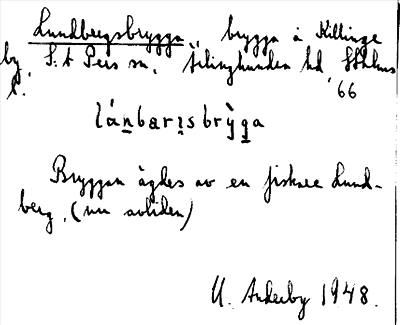 Lundbergsbrygga, brygga å Killinge
by, S:t Pers sn, Ärlinghundra hd, Sthlms
l. 66
lánbærisbrỳga
Bryggan ägdes av en fiskare Lund-
berg, (nu avliden)
U. Anderby 1948.